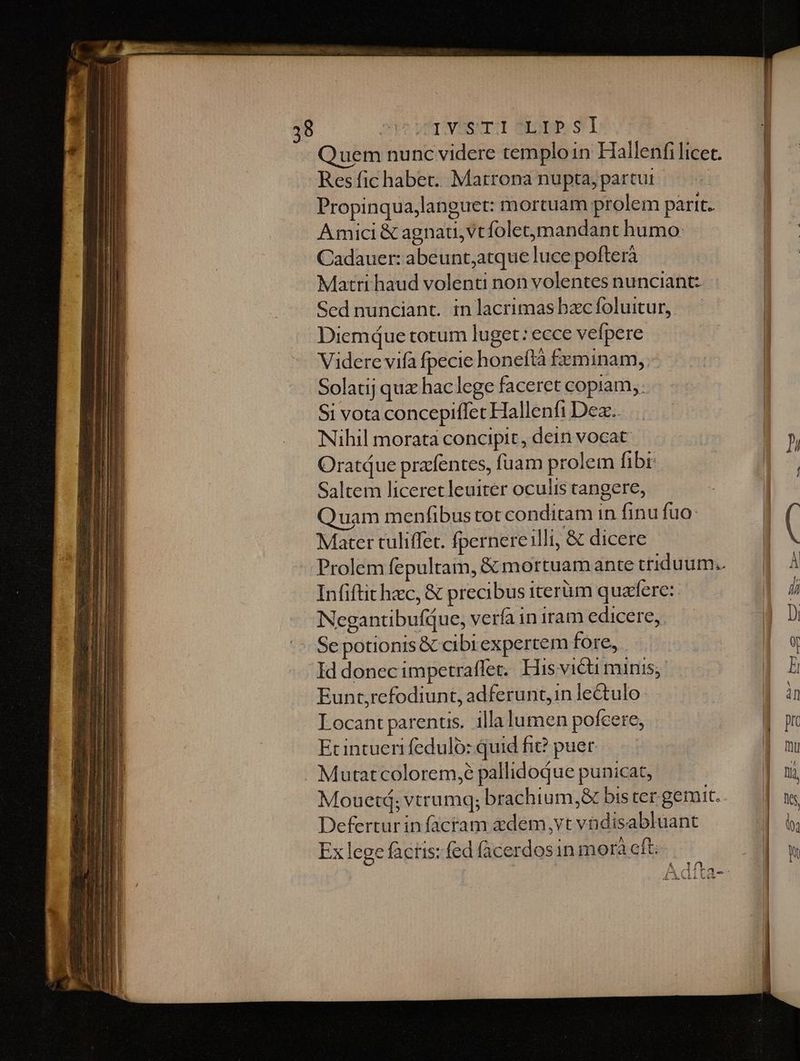 38 IVSTI LIPSI
Quem nunc videre templo in Hallenſi licet.
Res ſic habet. Matrona nupta, partui
Propinqua, languet: mortuam prolem parit.
Amici & agnati, vt ſolet, mandant humo
Cadauer: abeunt, atque luce poſterâ
Matri haud volenti non volentes nunciant:
Sed nunciant. in lacrimas hæc ſoluitur,
Diemq́ue totum luget: ecce veſpere
Videre viſa ſpecie honeſtâ fæminam,
Solatij quæ hac lege faceret copiam,
Si vota concepiſſet Hallenſi Deæ.
Nihil morata concipit, dein vocat
Oratq́ue præſentes, ſuam prolem ſibi
Saltem liceret leuiter oculis tangere,
Quam menſibus tot conditam in ſinu ſuo
Mater tuliſſet. ſpernere illi, & dicere
Prolem ſepultam, & mortuam ante triduum.
Inſiſtit hæc, & precibus iterùm quæſere:
Negantibuſq́ue, verſa in iram edicere,
Se potionis & cibi expertem fore,
Id donec impetraſſet. His victi minis,
Eunt, refodiunt, adferunt, in lectulo
Locant parentis. illa lumen poſcere,
Et intueri ſedulò: quid fit? puer
Mutat colorem, è pallidoq́ue punicat,
Mouetq́; vtrumq; brachium, & bis ter gemit.
Defertur in ſacram ædem, vt vndis abluant
Ex lege ſactis: ſed ſacerdos in morâ eſt.
Adſta-